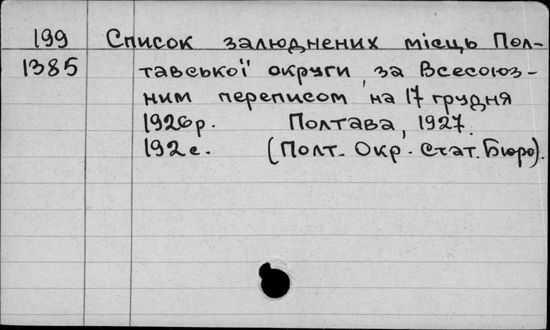 199 Список залюднених місць Пол-
1385 тавської округи за Всесоюз-
ним переписом на 17 грудня
1926р. Полтава, 1927.
192с. (Полт. Окр. Стат. Бюро).